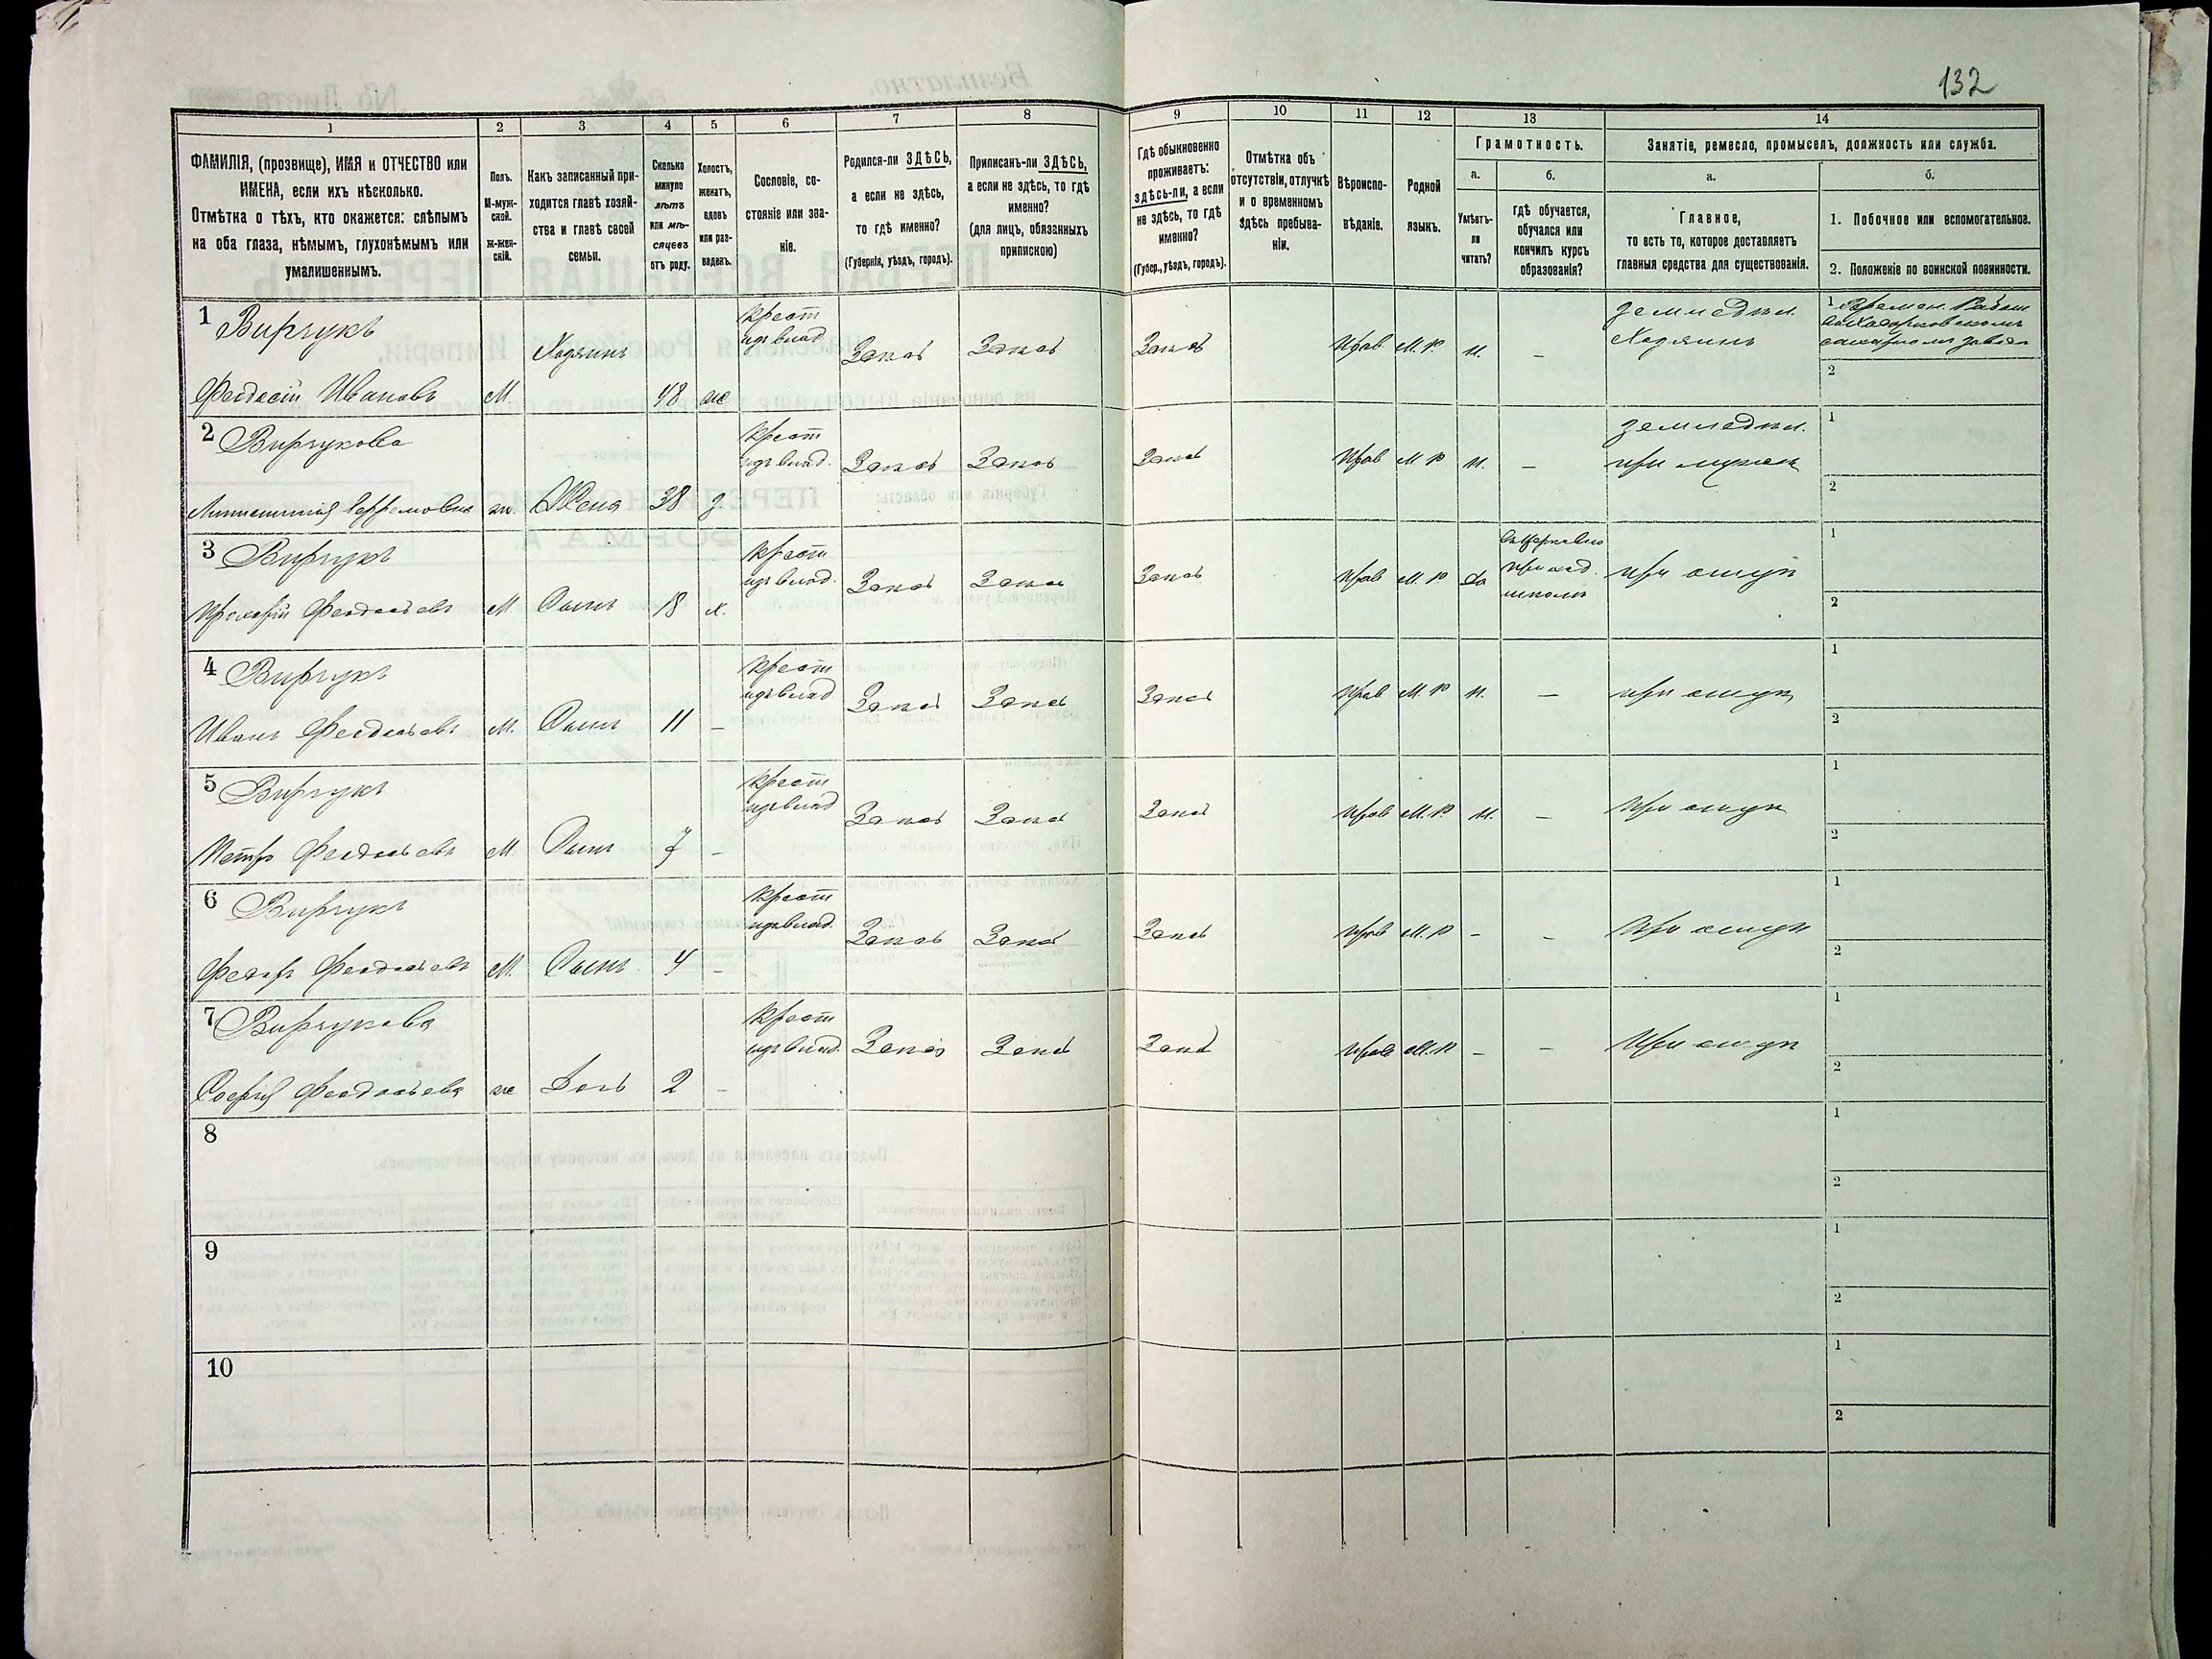 132
1
2
3
4
5
6
7
8
9
10
11
12
13
14
ФАМИЛІЯ, (прозвище), ИМЯ и ОТЧЕСТВО или
ИМЕНА, если ихъ нѣсколько.
Отмѣтка о тѣхъ, кто окажется: слѣпымъ
на оба глаза, нѣмымъ, глухонѣмымъ или
умалишеннымъ.
Полъ.
М-муж-
ской.
Ж-жен-
скій.
Какъ записанный при-
ходится главѣ хозяй-
ства и главѣ своей
семьи.
Сколько
минуло
лѣтъ
или мѣ-
сяцевъ
отъ роду.
Холостъ,
женатъ,
вдовъ
или раз-
веденъ.
Сословіе, со-
стояніе или зва-
ніе.
Родился-ли ЗДѢСЬ,
а если не здѣсь,
то гдѣ именно?
(Губернія, уѣздъ, городъ).
Приписанъ-ли ЗДѢСЬ,
а если не здѣсь, то гдѣ
именно?
(для лицъ, обязанныхъ
припискою)
Гдѣ обыкновенно
проживаетъ:
здѣсь-ли, а если
не здѣсь, то гдѣ
именно?
(Губер., уѣздъ, городъ).
Отмѣтка объ
отсутствіи, отлучкѣ
и о временномъ
здѣсь пребыва-
ніи.
Вѣроиспо-
вѣданіе.
Родной
языкъ.
Грамотность.
а.
Умѣетъ-
ли
читать?
б.
гдѣ обучается,
обучался или
кончилъ курсъ
образованія?
Занятіе, ремесло, промыселъ, должность или служба.
а.
Главное,
то есть то, которое доставляетъ
главныя средства для существованія.
б.
1. Побочное или вспомогательное.
2. Положеніе по воинской повинности.
1 Вирчукъ
Феодосій Ивановъ
М.
Хозяинъ
48
же
крест
изъ влад
Здѣсь
Здѣсь
Здѣсь
Прав
М. Р.
н.
—
земледѣл.
Хозяинъ
1
сахарномъ заводѣ
2
2 Вирчукова
Ефремовна
ж.
Жена
38
з.
крест
изъ влад.
Здѣсь
Здѣсь
Здѣсь
Прав
М. Р
н.
—
земледѣл.
при мужѣ
1
2
3 Вирчукъ
Прокофій Феодосьевъ
М
Сынъ
18
х.
крест
изъ влад.
Здѣсь
Здѣсь
Здѣсь
Прав
М. Р
да
въ церковно
приход.
школѣ
при отцѣ
1
2
4 Вирчукъ
Иванъ Феодосьевъ
М.
Сынъ
11
—
крест
изъ влад
Здѣсь
Здѣсь
Здѣсь
Прав
М. Р
н.
—
при отцѣ
1
2
5 Вирчукъ
Петръ Феодосьевъ
М
Сынъ
7
—
крест
изъ влад
Здѣсь
Здѣсь
Здѣсь
Прав
М. Р.
н.
—
при отцѣ
1
2
6 Вирчукъ
Федоръ Феодосьевъ
М.
Сынъ
4
—
крест
изъ влад.
Здѣсь
Здѣсь
Здѣсь
Прав
М. Р
—
—
при отцѣ
1
2
7 Вирчукова
Софія Феодосьева
же
Дочь
2
—
крест
изъ влад.
Здѣсь
Здѣсь
Здѣсь
Прав
М. Р
—
—
При отцѣ
1
2
8
1
2
9
1
2
10
1
2